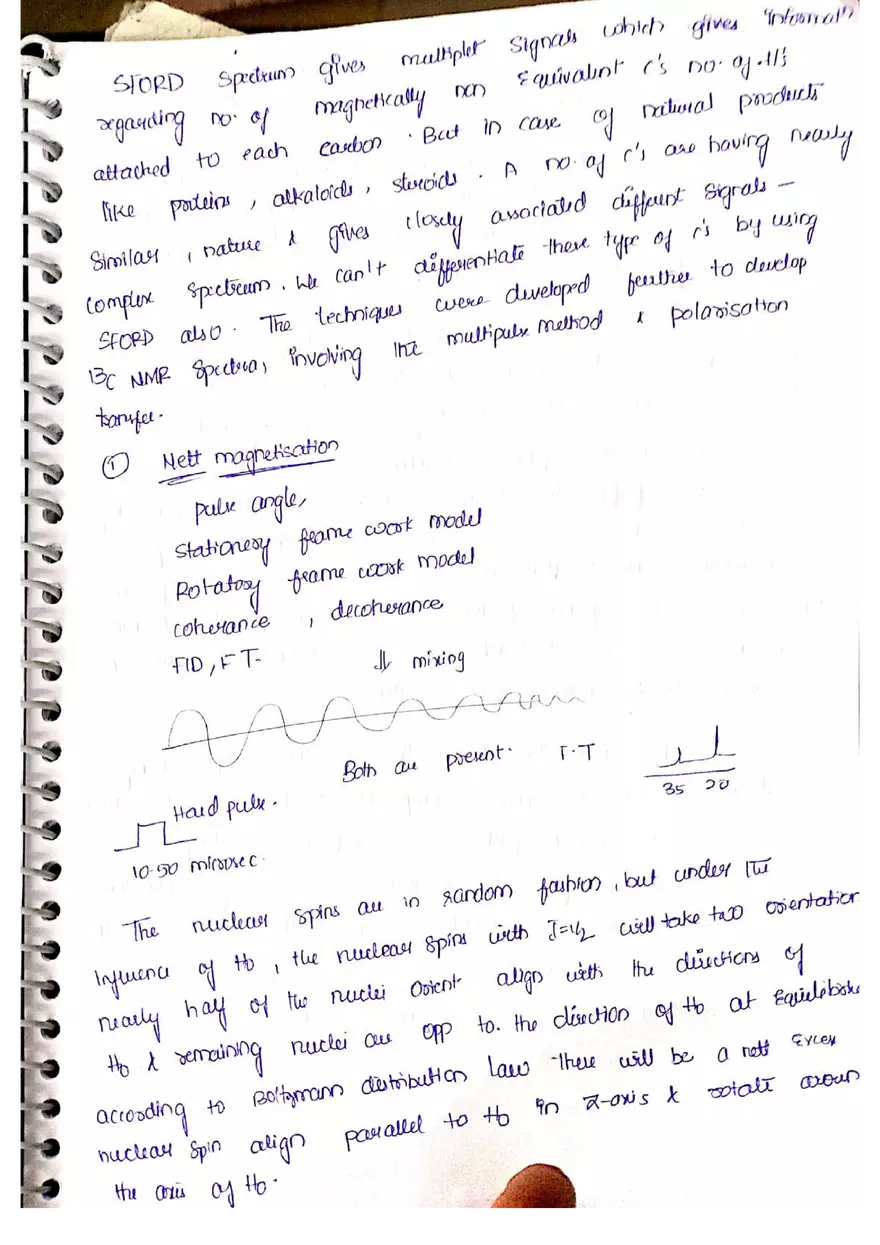 SFORD Spectrum gives multiplet Signals which gives informatn
regarding no. of magnetically non Equivalent c's no. of H's
attached to each carbon. But in case of natural products
like proteins, alkaloids, steroids. A no. of c's are having nearly
Similar, nature & gives closely associated different signals –
complex spectrum. We can't differentiate these type of c's by using
SFORD also. The techniques were developed further to develop
13C NMR Spectra, involving the multipulse method & polarisation
transfer.
① Nett magnetisation
pulse angle,
Stationery frame work model
Rotatory frame work model
coherance, decoherance
FID, FT- ⇓ mixing
Both are present. F.T
35 20
Hard pulse.
10-50 microsec.
The nuclear spins are in random fashion, but under the
Influence of Ho, the nuclear spins with I=1/2 will take two orientation
nearly half of the nuclei Orient align with the directions of
Ho & remaining nuclei are opp to. the direction of Ho at Equilibri
according to Boltzmann distribution Law there will be a nett Excess
nuclear spin align parallel to Ho in Z-axis & rotate aroun
the axis of Ho.